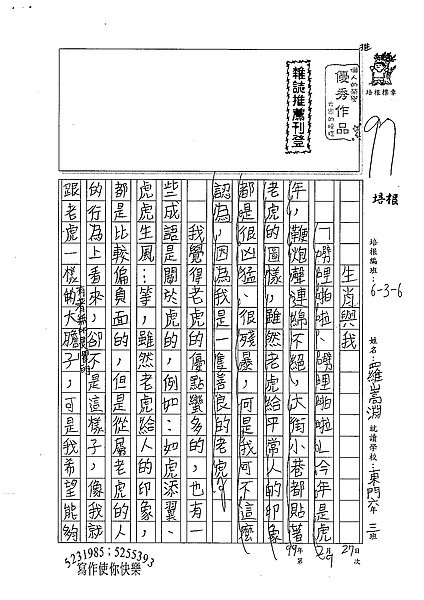 推
培根標章
個人的榮譽
優秀作品
大家的榜樣
雜誌推薦刊登
97
培根
培根編班:6-3-6
姓名:羅嵩淵
就讀學校:東門六年三班
99年2月27日
第9次
生肖與我
「劈哩啪啦、劈哩啪啦」今年是虎
年,鞭炮聲連綿不絕,大街小巷都貼著
老虎的圖樣,雖然老虎給平常人的印象
都是很凶猛、很殘暴,可是我可不這麼
認為,因為我是一隻善良的老虎。
我覺得老虎的優點蠻多的,也有一
些成語是關於老虎的,例如:如虎添翼、
虎虎生風…等,雖然老虎給人的印象,
都是比較偏負面的,但是從屬老虎的人
的行為上看來,卻不是這樣子,像我就
跟老虎一樣的大膽子,可是我希望能夠
5231985;5255393
寫作使你快樂